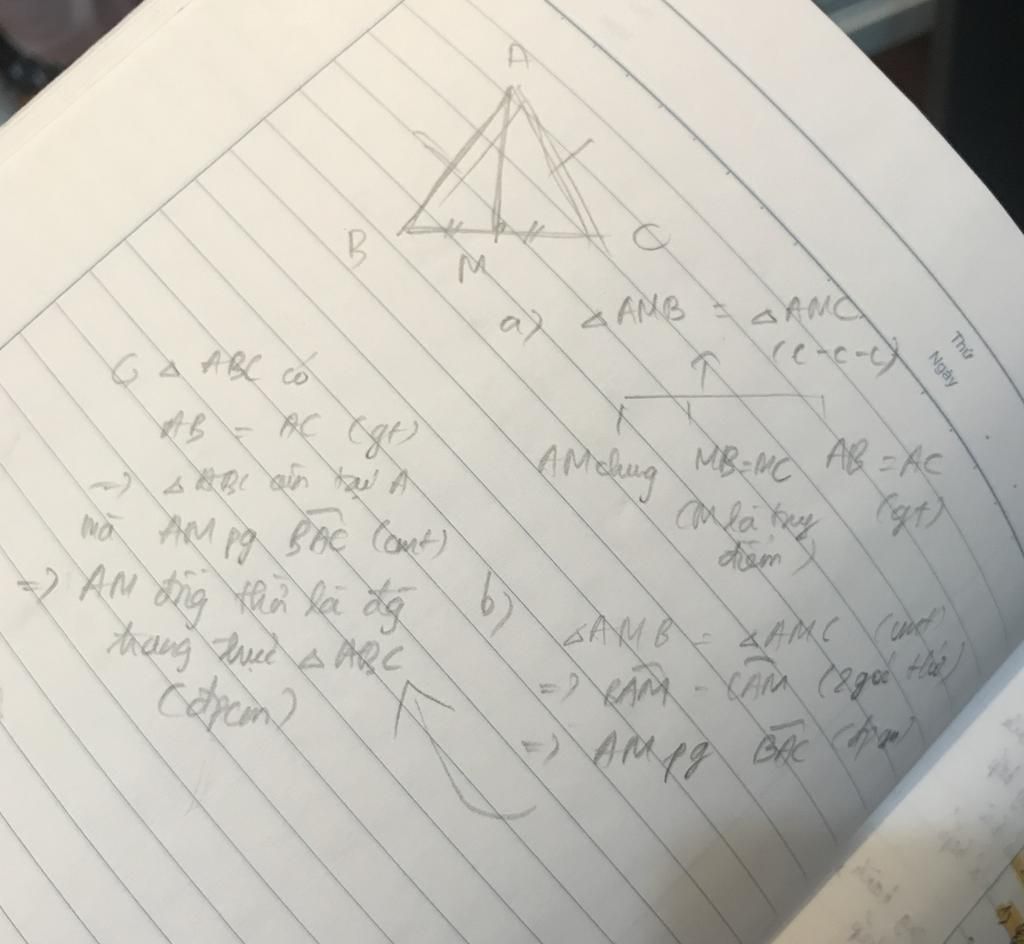 A
B
M
C
a) △AMB = △AMC
(c-c-c)
AM chung MB=MC AB = AC
(M là trg (gt)
điểm)
b)
△AMB = △AMC (cmt)
=> BAM = CAM (2 góc
=> AM pg BAC
C △ ABC có
AB = AC (gt)
=> △ABC cân tại A
mà AM pg BAC (cmt)
=> AM đồg thời là đg
trung trực △ABC
(đpcm)
Thứ
Ngày